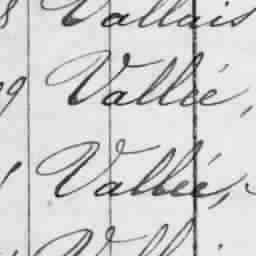 8 Vallais
9 Vallée,
Vallée,